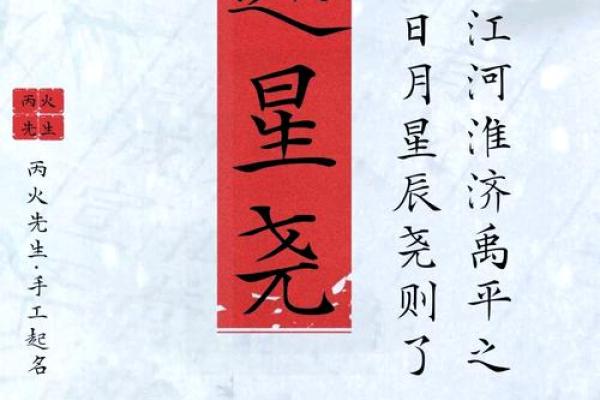 江河淮济禹平之
日月星辰尧则了
星尧
丙火
先生
丙火先生·手工起名